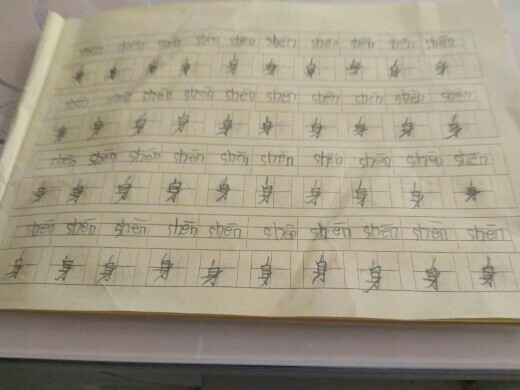 shēn shēn shēn shēn shēn shēn shēn shēn shēn shēn
身 身 身 身 身 身 身 身 身 身
shēn shēn shēn shēn shēn shēn shēn shēn shēn shēn
身 身 身 身 身 身 身 身 身 身
shēn shēn shēn shēn shēn shēn shēn shēn shēn shēn
身 身 身 身 身 身 身 身 身 身
shēn shēn shēn shēn shēn shēn shēn shēn shēn shēn
身 身 身 身 身 身 身 身 身 身